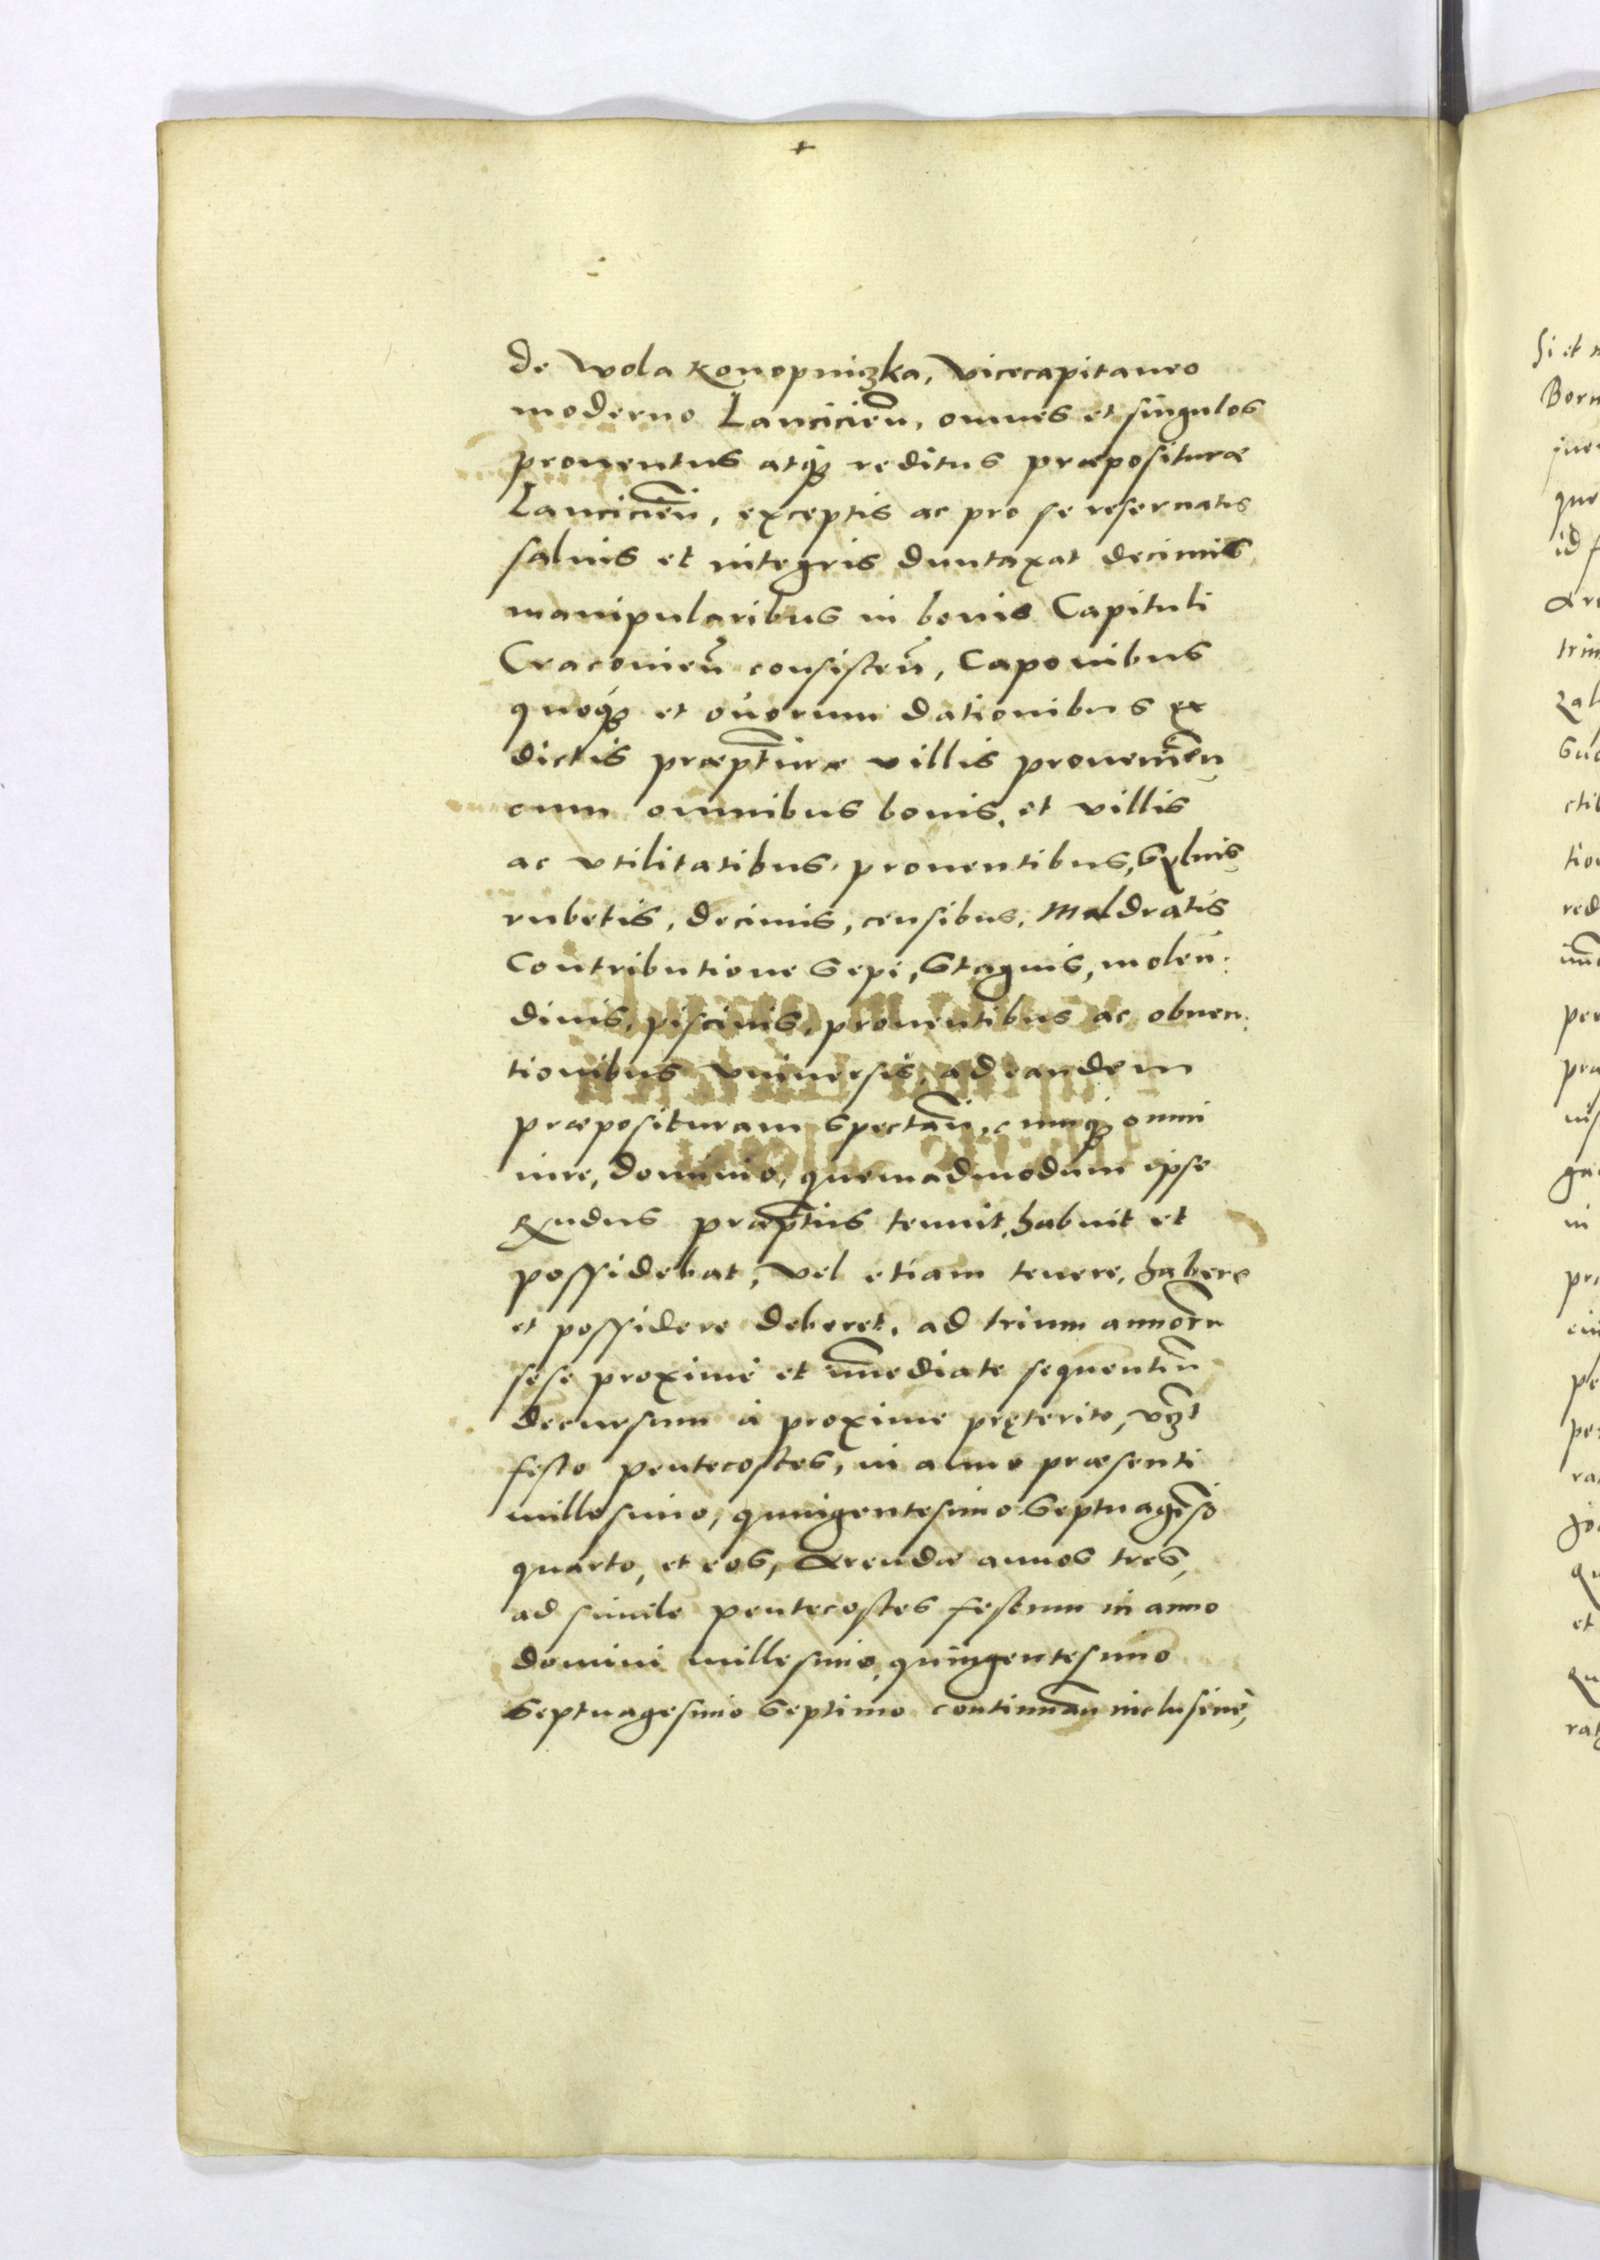 de Wola Konopniczka, Vicecapitaneo
moderno Lancicien̄, omnes et singulos
prouentus atq́ꝫ reditus præposituræ
Lancicien̄, exceptis ac pro se reseruatis
saluis et integris duntaxat decimis
manipularibus in bonis Capituli
Cracouien̄ consisten̄, Caponibus
quoq́ꝫ et ouorum dationibus ex
dictis præptūræ villis prouenien̄
cum omnibus bonis, et villis
ac vtilitatibus, prouentibus, Syluis
rubetis, decimis, censibus, Maldratis
Contributione Sepi, Stagnis, molen:
dinis, piscinis, prouentibus ac obuen:
tionibus vniuersis, ad eandem
præposituram Spectan̄, cumq́ꝫ omni
iure, dominio, quemadmodum ipse
Rndus præptūs tenuit, habuit et
possidebat, vel etiam tenere, habere
et possidere deberet, ad trium annorū
sese proximè et īmediate sequentiū
decursum à proxime pręterito, vꝫt
festo pentecostes, in anno præsenti
millesimo, quingentesimo Septuages̄o
quarto, et eos, Arendæ annos tres,
ad simile pentecostes festum in anno
domini millesimo quingentesimo
Septuagesimo Septimo continuan̄ inclusiuè,